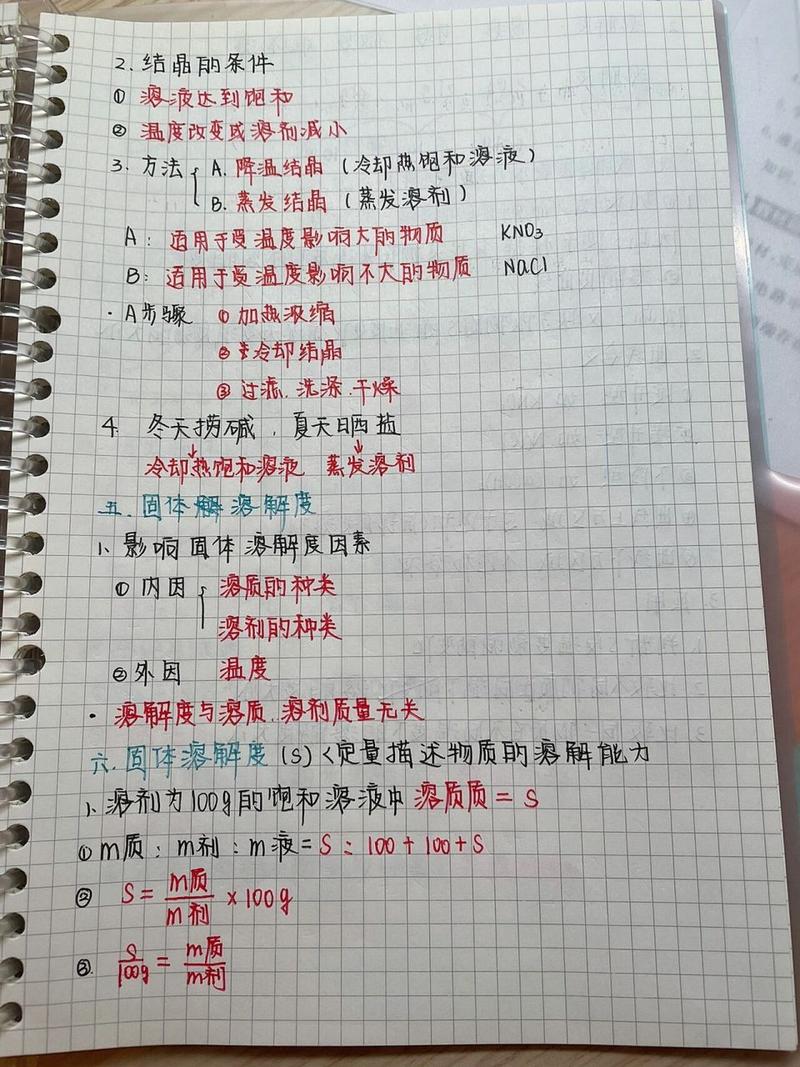 2. 结晶的条件
① 溶液达到饱和
② 温度改变或溶剂减小
3. 方法 { A. 降温结晶 (冷却热饱和溶液)
B. 蒸发结晶 (蒸发溶剂)
A: 适用于受温度影响大的物质 KNO3
B: 适用于受温度影响不大的物质 NaCl
· A步骤 ① 加热浓缩
② 冷却结晶
③ 过滤. 洗涤. 干燥
4. 冬天捞碱, 夏天晒盐
↓ ↓
冷却热饱和溶液 蒸发溶剂
五. 固体解溶解度
1. 影响固体溶解度因素
① 内因 { 溶质的种类
溶剂的种类
② 外因 温度
· 溶解度与溶质. 溶剂质量无关
六. 固体溶解度 (S) <定量描述物质的溶解能力
1. 溶剂为100g的饱和溶液中溶质质 = S
① m质 : m剂 : m液 = S : 100 + 100 + S
② S = m质/m剂 × 100g
③. S/100g = m质/m剂